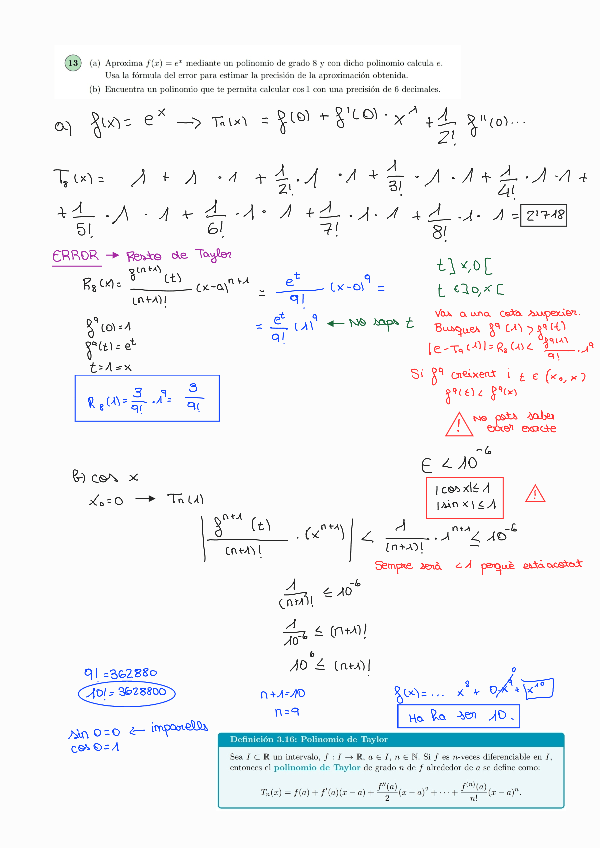 13 (a) Aproxima f(x) = e^x mediante un polinomio de grado 8 y con dicho polinomio calcula e.
Usa la fórmula del error para estimar la precisión de la aproximación obtenida.
(b) Encuentra un polinomio que te permita calcular cos 1 con una precisión de 6 decimales.
a) f(x) = e^x → Tn(x) = f(0) + f'(0) · x^1 + 1/2! f''(0)...
T8(x) = 1 + 1 · 1 + 1/2! · 1 · 1 + 1/3! · 1 · 1 + 1/4! · 1 · 1 +
+ 1/5! · 1 · 1 + 1/6! · 1 · 1 + 1/7! · 1 · 1 + 1/8! · 1 · 1 = 2'718
ERROR → Resto de Taylor
R8(x) = f^(n+1)(t)/(n+1)! (x-a)^(n+1) = e^t/9! (x-0)^9 =
= e^t/9! (1)^9 ← No saps t
t ]x,0[
t ∈]0,x[
f^9(0)=1
f^9(t)=e^t
t=1=x
R8(1) = 3/9! · 1^9 = 3/9!
Vas a una cota superior.
Busques f^9(1) > f^9(t)
|e-T9(1)| = R8(1) < f^9(1)/9! · 1^9
Si f^9 creixent i t ∈ (x0, x)
f^9(t) < f^9(x)
! No pots saber
error exacte
b) cos x
x0=0 → Tn(1)
E < 10^-6
|cos x| ≤ 1
|sin x| ≤ 1
!
| f^(n+1)(t)/(n+1)! · (x^(n+1)) | < 1/(n+1)! · 1^(n+1) ≤ 10^-6
Sempre serà <1 perquè està acotat
1/(n+1)! ≤ 10^-6
1/10^-6 ≤ (n+1)!
10^6 ≤ (n+1)!
9! = 362880
10! = 3628800
n+1=10
n=9
f(x) = ... x^8 + 0·x^9 + x^10
0
Ha de ser 10.
sin 0=0 ← imparells
cos 0=1
Definición 3.16: Polinomio de Taylor
Sea I ⊂ ℝ un intervalo, f : I → ℝ, a ∈ I, n ∈ ℕ. Si f es n-veces diferenciable en I,
entonces el polinomio de Taylor de grado n de f alrededor de a se define como:
Tn(x) = f(a) + f'(a)(x − a) + f''(a)/2 (x − a)^2 + ··· + f^(n)(a)/n! (x − a)^n.